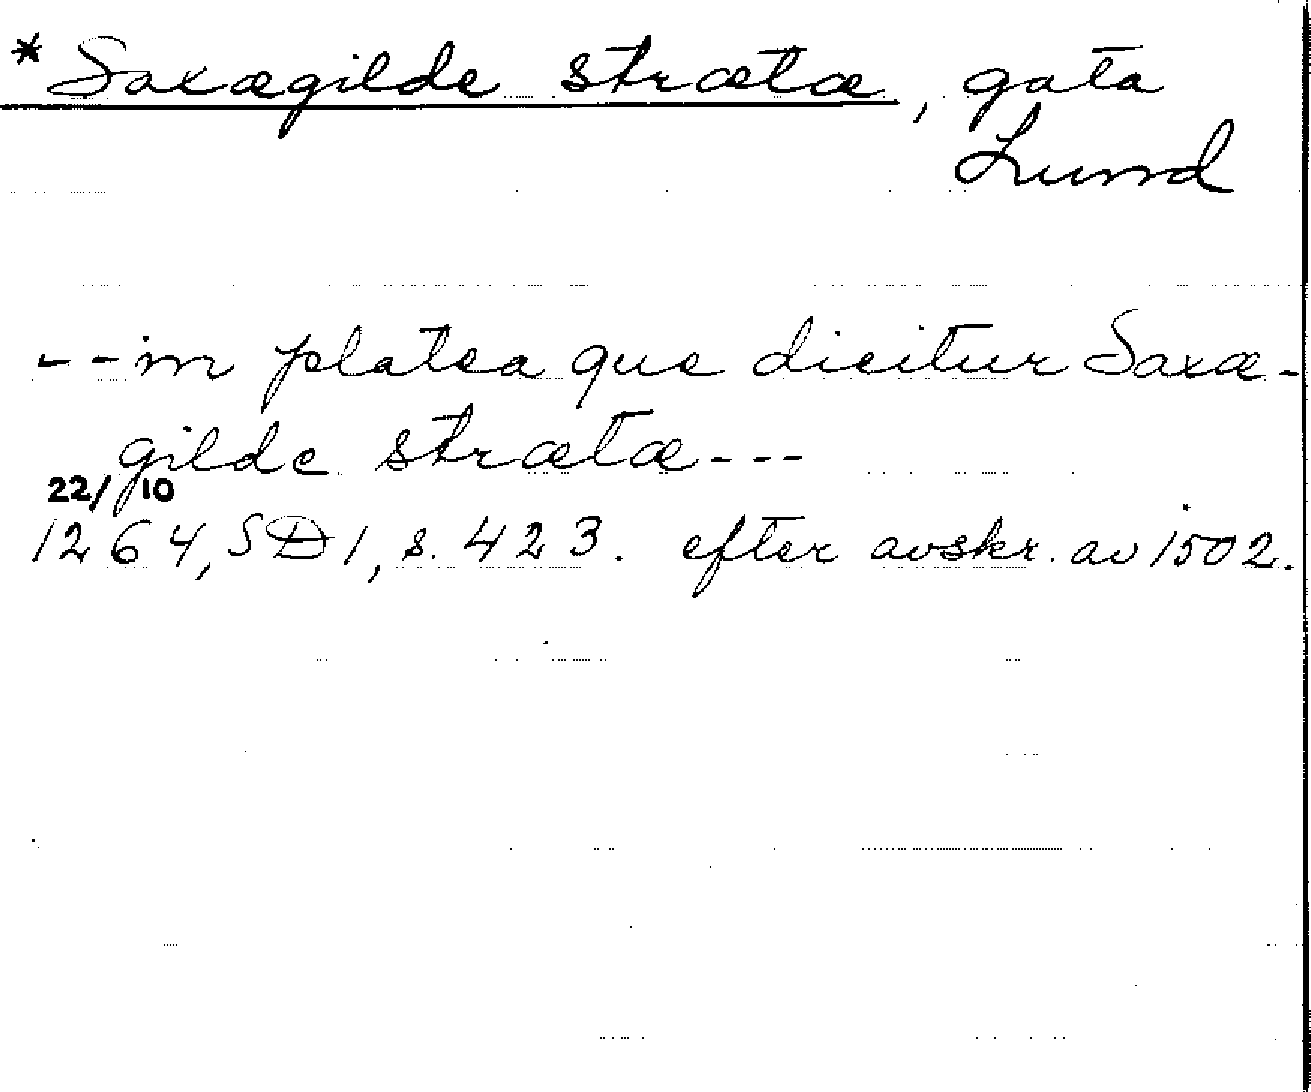 *Saxægilde strætæ, gata
Lund
--in platea que dicitur Saxæ-
gilde strætæ---
22/10
1264, SD 1, s. 423. efter avskr. av 1502.